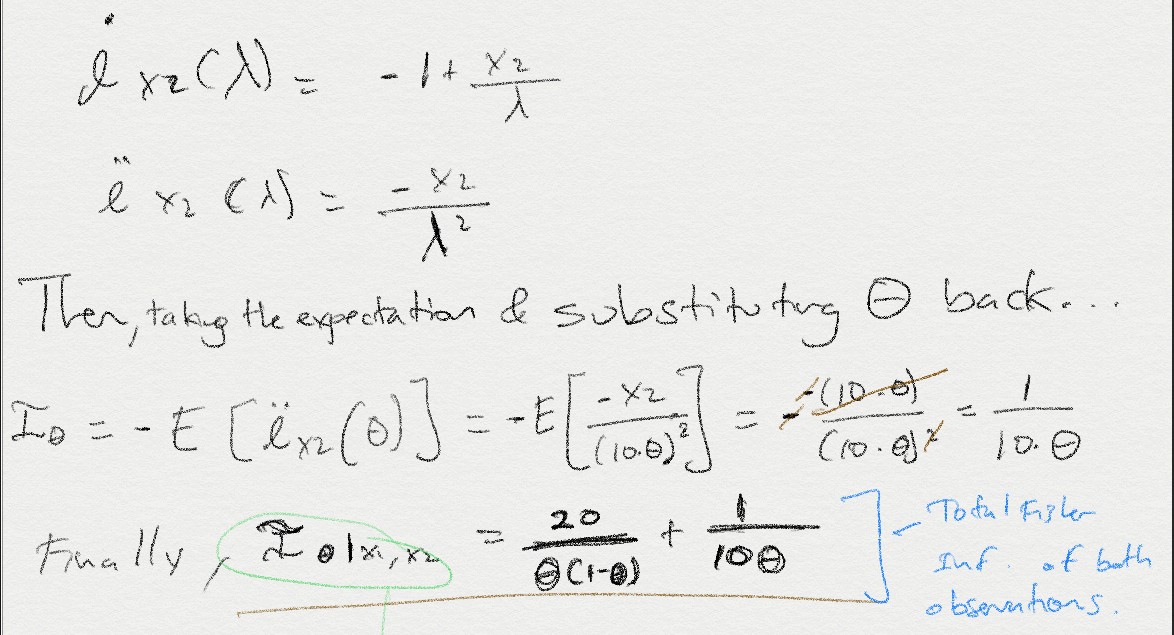 ℓ̇ x₂(λ) = -1 + x₂/λ
ℓ̈ x₂ (λ) = -x₂/λ²
Then, taking the expectation & substituting Θ back...
I_θ = -E [ℓ̈_x₂(θ)] = -E[-x₂/(10.θ)²] = --(10.θ)/(10.θ)² = 1/(10.Θ)
Finally, I_θ|x₁,x₂ = 20/(θ(1-θ)) + 1/(10θ)
Total Fisher
Inf. of both
observations.